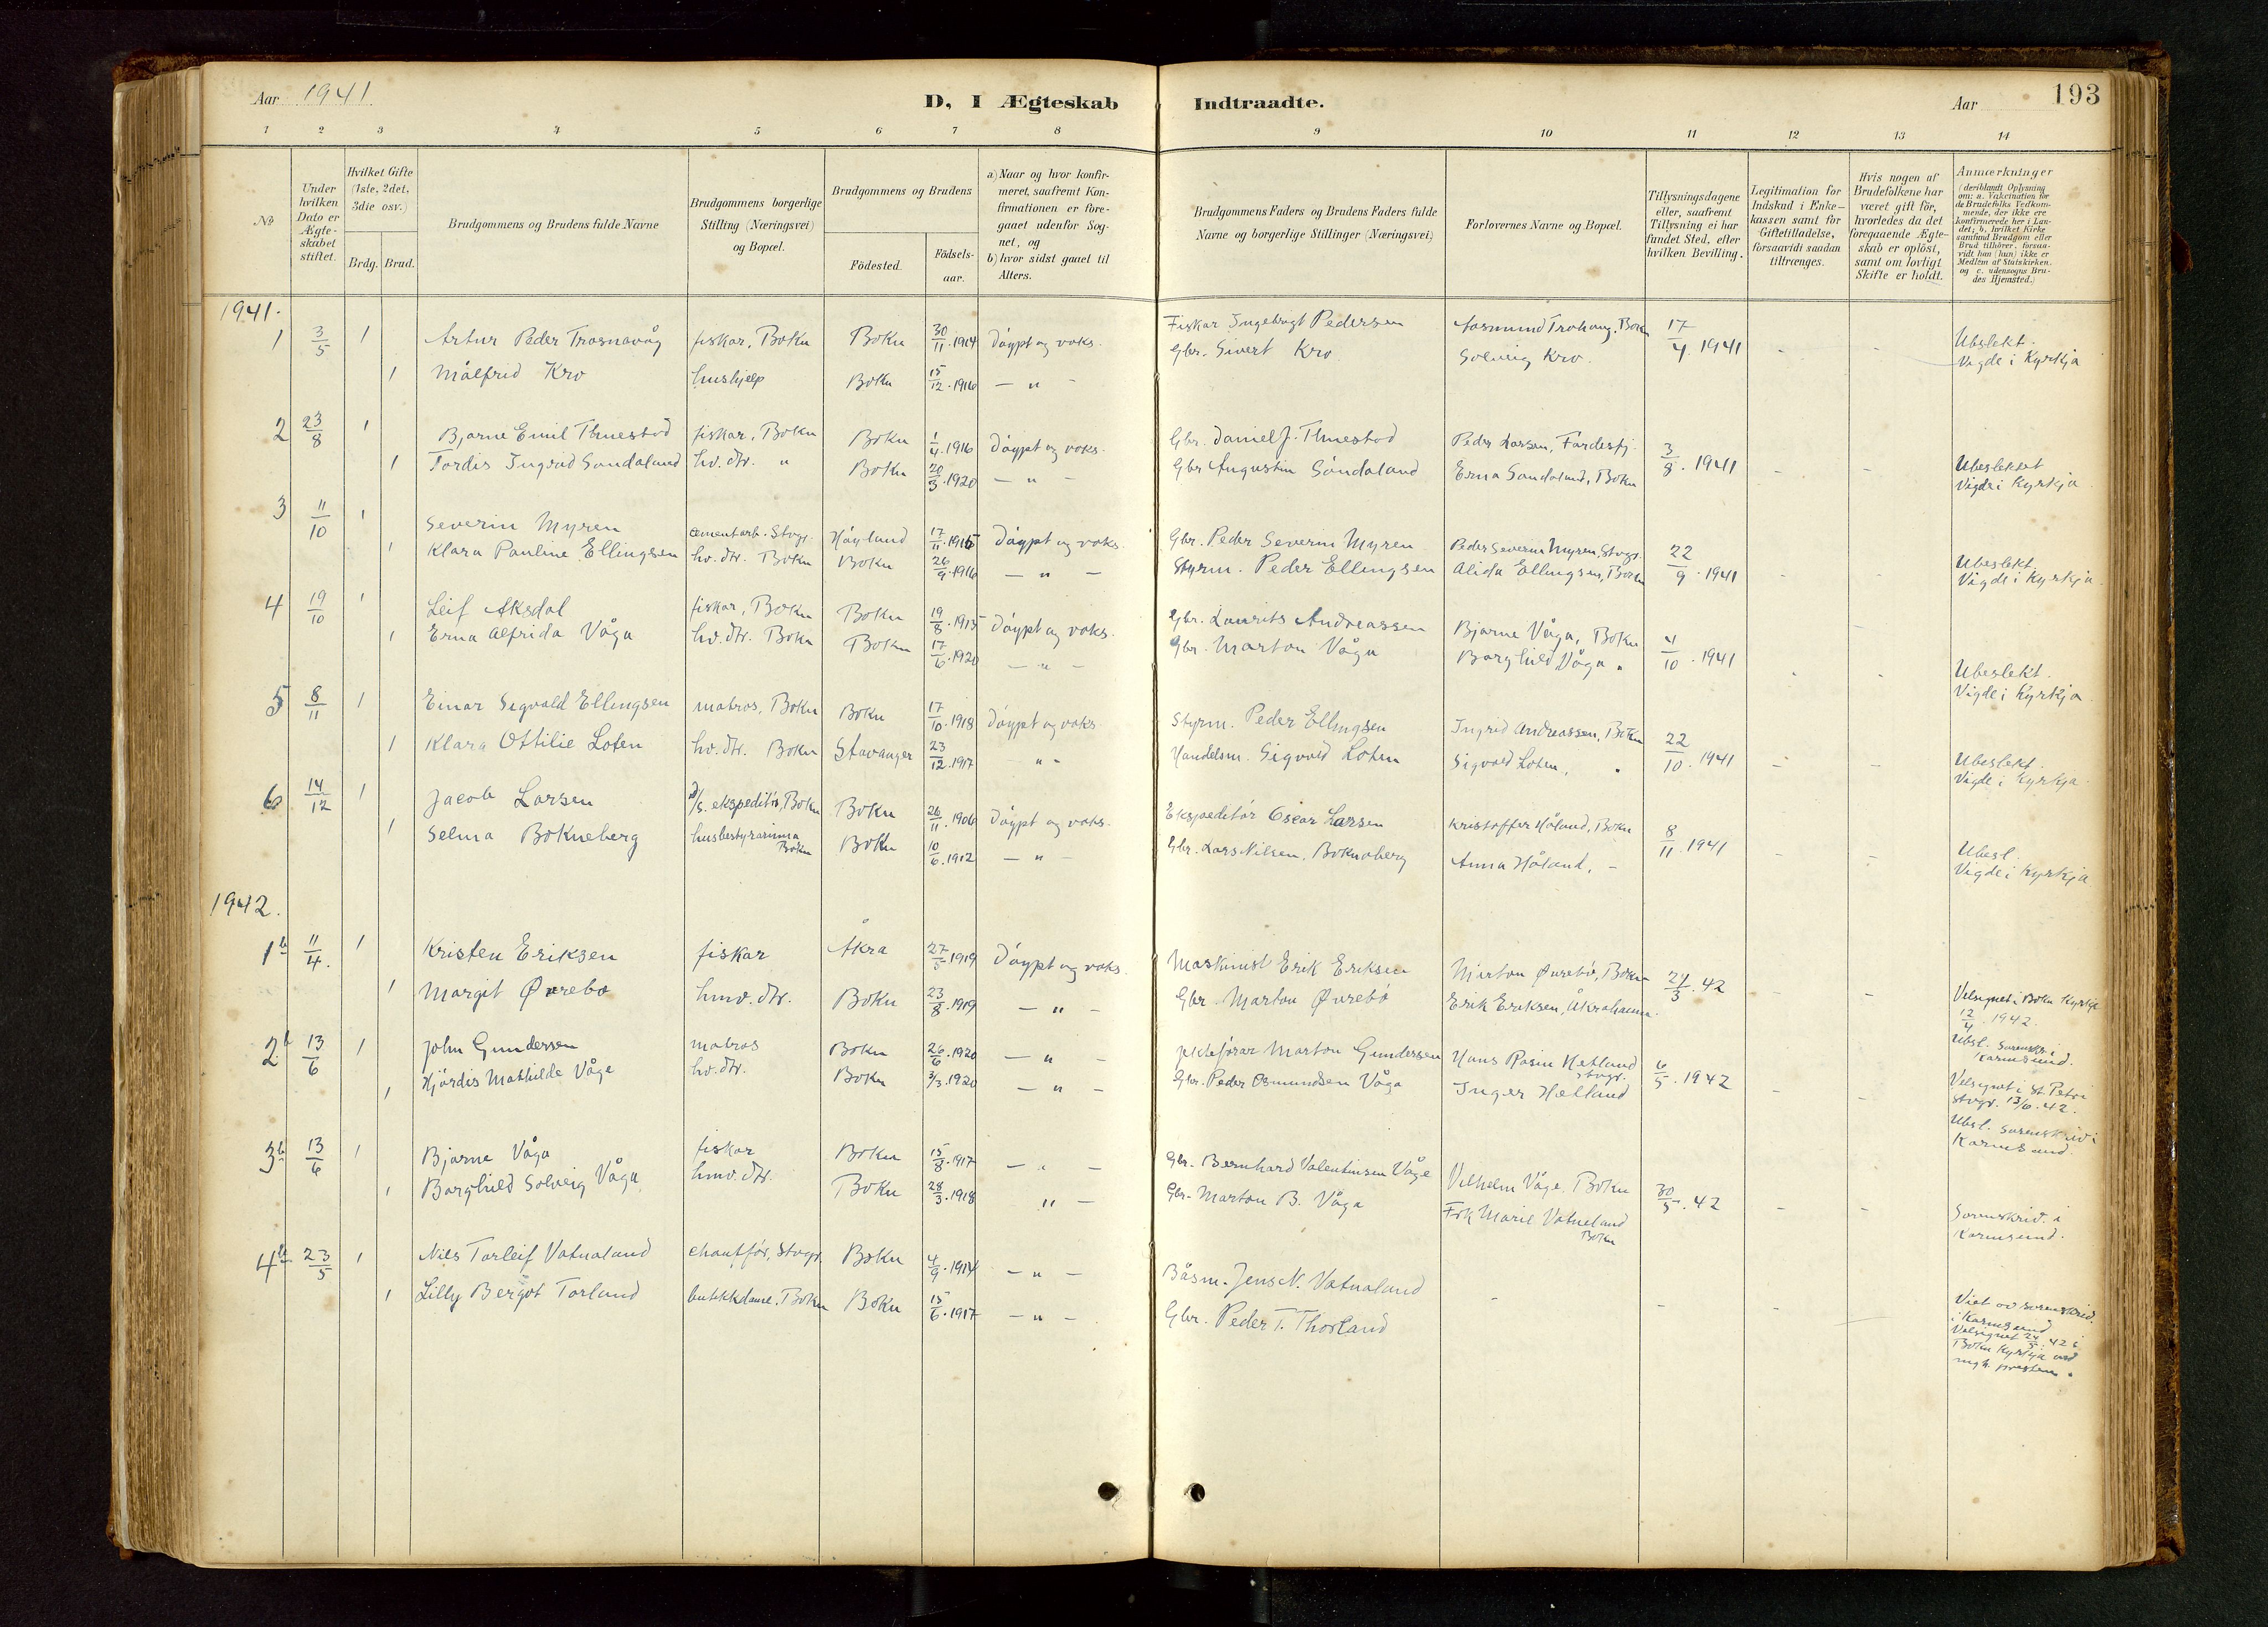 Aar 1941
D, I Ægteskab Indtraadte.
Aar 193
1 2 3 4 5 6 7 8 9 10 11 12 13 14
No
Under hvilken Dato er Ægte-skabet stiftet.
Hvilket Gifte (1ste, 2det, 3die osv.)
Brdg. Brud.
Brudgommens og Brudens fulde Navne
Brudgommens borgerlige Stilling (Næringsvei) og Bopæl.
Brudgommens og Brudens
Födested. Födsels-aar.
a) Naar og hvor konfir-meret, saafremt Kon-firmationen er fore-gaaet udenfor Sog-net, og
b) hvor sidst gaaet til Alters.
Brudgommens Faders og Brudens Faders fulde Navne og borgerlige Stillinger (Næringsvei)
Forlovernes Navne og Bopæl.
Tillysningsdagene eller, saafremt Tillysning ei har fundet Sted, efter hvilken Bevilling.
Legitimation for Indskud i Enke-kassen samt for Giftetilladelse, forsaavidt saadan tiltrænges.
Hvis nogen af Brudefolkene har været gift för, hvorledes da det foregaaende Ægte-skab er oplöst, samt om lovligt Skifte er holdt.
Anmærkninger (deriblandt Oplysning om: a. Vakcination for de Brudefolks Vedkom-mende, der ikke ere konfirmerede her i Lan-det; b. hvilket Kirke samfund Brudgom eller Brud tilhörer, forsaa-vidt han (hun) ikke er Medlem af Statskirken, og c. udensogns Bru-des Hjemsted.)
1941.
1 3/5 1 Artur Peder Trosnavåg fiskar, Bokn Bokn 30/11.1914 Döypt og voks. Fiskar Ingebrigt Pedersen Aasmund Trohaug, Bokn 17/4.1941 - - Ubslekt.
1 Målfrid Kro hushjelp Bokn 15/12.1916 — " — Gbr. Sivert Kro Solveig Kro. Vigde i Kyrkja
2 23/8 1 Bjarne Emil Tknestad fiskar, Bokn Bokn 1/4.1916 Döypt og voks. Gbr. Daniel J. Tknestad Peder Larsen, Fardesfj. 3/8.1941 - - Ubeslektet
1 Tordis Ingrid Sandaland hv. dtr. " Bokn 20/3.1920 — " — Gbr Augustin Sandaland Erna Sandaland, Bokn Vigde i Kyrkja
3 11/10 1 Severin Myren cementarb. Stvgr. Höyland 17/11.1915 Döypt og voks. Gbr. Peder Severin Myren Peder Severin Myren, Stvgr. 22/9.1941 - - Ubeslekt.
1 Klara Pauline Ellingsen hv. dtr. Bokn Bokn 26/9.1916 — " — Styrm. Peder Ellingsen Alida Ellingsen, Bokn Vigde i Kyrkja.
4 19/10 1 Leif Aksdal fiskar, Bokn Bokn 19/8.1915 Döypt og voks. Gbr. Laurits Andreassen Bjarne Våga, Bokn 4/10.1941 - - Ubeslekt.
1 Erna Alfrida Våga hv. dtr. Bokn Bokn 17/6.1920 — " — Gbr. Marton Våga Borghild Våga " Vigde i Kyrkja
5 8/11 1 Einar Sigvald Ellingsen matros, Bokn Bokn 17/10.1918 Döypt og voks Styrm. Peder Ellingsen Ingrid Andreassen, Bokn 22/10.1941 - - Ubeslekt.
1 Klara Ottilie Loten hv. dtr. Bokn Stavanger 23/12.1917 " - Handelsm. Sigvald Loten Sigvald Loten, " Vigde i Kyrkja.
6 14/12 1 Jacob Larsen D/S. ekspeditör, Bokn Bokn 26/11.1906 Döypt og voks. Ekspeditör Oscar Larsen Kristoffer Håland, Bokn 8/11.1941 - - Ubesl.
1 Selma Bokneberg husbestyrarinna Bokn Bokn 10/6.1912 — " — Gbr. Lars Nilsen Bokneberg Anna Håland, - Vigde i Kyrkja
1942.
1b 11/4. 1 Kristen Eriksen fiskar Åkra 27/5.1919 Döypt og voks. Maskinist Erik Eriksen Marton Övrebö, Bokn 24/3.42 - - Velsignet i Bokn Kyrkja
1 Margit Øvrebø hmv. dtr. Bokn 23/8.1919 — " — Gbr. Marton Øvrebö Erik Eriksen, Åkrahamn. 12/4.1942.
Ubsl. Sorenskr. i Karmsund.
2b 13/6 1 John Gundersen matros Bokn 26/6.1920 — " — Jekteförar Marton Gundersen Hans Rasm Hetland Stvgr. 6/5.1942 - - Velsignet i St. Petri
1 Hjördis Mathilde Våge hv. dtr. Bokn 3/3.1920 — " — Gbr. Peder Osmundsen Våga Inger Hetland Stvgr. 13/6.42.
Ubsl. Sorenskriv. i Karmsund.
3b 13/6 1 Bjarne Våga fiskar Bokn 15/8.1917 — " — Gbr. Bernhard Valentinsen Våge Vilhelm Våge, Bokn 30/5.42 - - Sorenskriv. i
1 Borghild Solveig Våga hmv. dtr. Bokn 28/3.1918 " — Gbr. Marton B. Våga Frk Marie Vatneland Bokn Karmsund.
4b 23/5 1 Nils Torleif Vatnaland chaufför, Stvgr. Bokn 4/9.1914 — " — Båsm. Jens N. Vatnaland - - - Viet av sorenskriv.
1 Lilly Bergot Torland butikkdame. Bokn Bokn 15/6.1917 — " — Gbr. Peder T. Thorland i Karmsund
Velsignet 24/5.42 i
Bokn Kyrkja ved
presten.